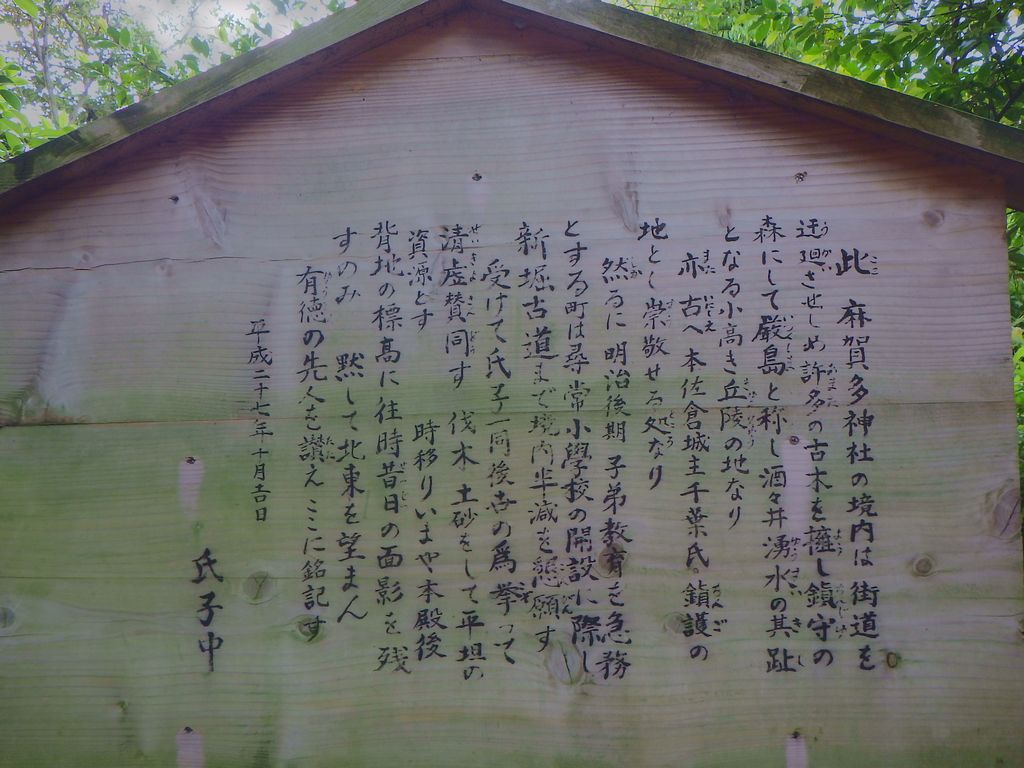 此 麻賀多神社の境内は街道を
迂廻させしめ許多の古木を擁し鎮守の
森にして厳島と称し酒々井湧水の其趾
となる小高き丘陵の地なり
亦 古へ 本佐倉城主千葉氏 鎮護の
地とし崇敬せる処なり
然るに 明治後期 子弟教育を急務
とする町は尋常小學校の開設に際し
新堀古道まで境内半減を懇願す
受けて氏子一同後世の為挙って
清虚賛同す 伐木土砂をして平坦の
資源とす 時移りいまや本殿後
背地の標高に往時昔日の面影を残
すのみ 黙して北東を望まん
有徳の先人を讃えここに銘記す
平成二十七年十月吉日
氏子中